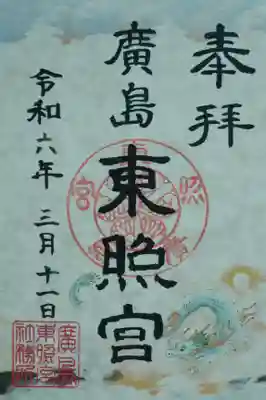 奉拝
廣島東照宮
令和六年 三月十一日
廣島
東照宮
社務所